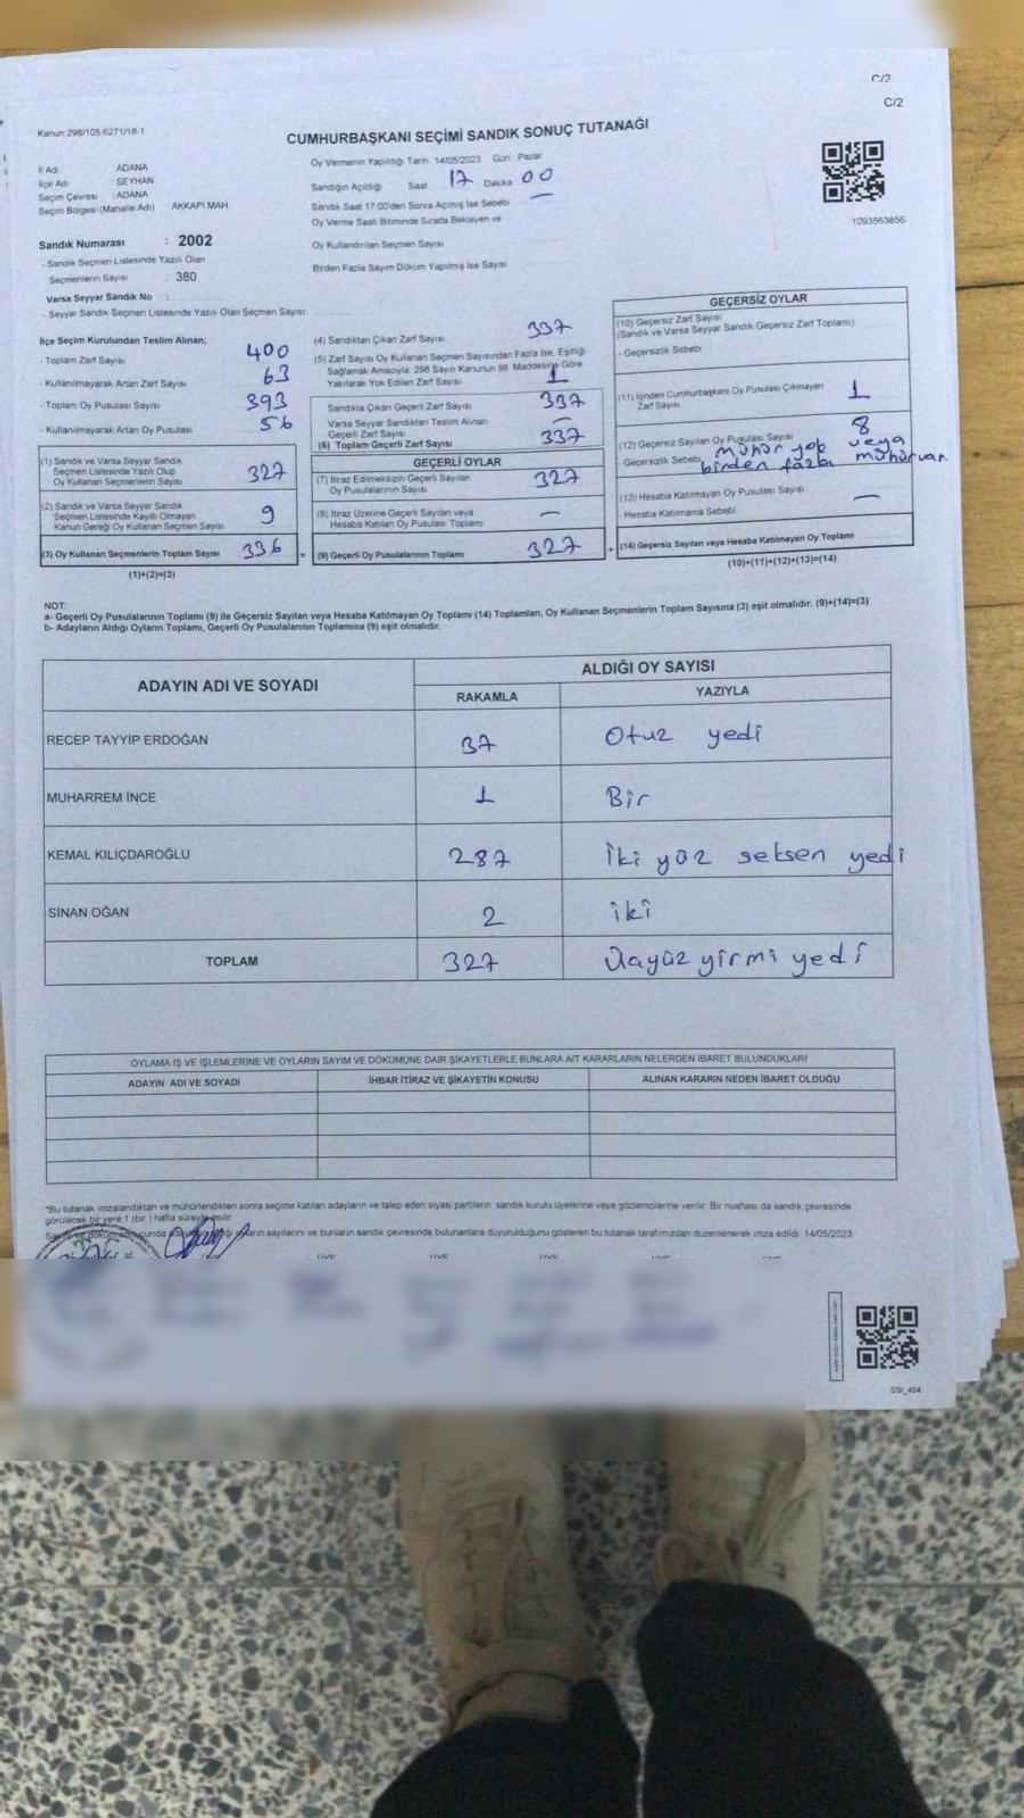 C/2
C/2
Kanun:298/105 6271/18-1
CUMHURBAŞKANI SEÇİMİ SANDIK SONUÇ TUTANAĞI
İl Adı : ADANA
İlçe Adı : SEYHAN
Seçim Çevresi : ADANA
Seçim Bölgesi (Mahalle Adı) : AKKAPI MAH
Oy Vermenin Yapıldığı Tarih: 14/05/2023 Gün: Pazar
Sandığın Açıldığı Saat 17 Dakika 00
Sandık Saat 17:00'den Sonra Açılmış İse Sebebi —
Oy Verme Saati Bitiminde Sırada Bekleyen ve
Oy Kullandırılan Seçmen Sayısı
Birden Fazla Sayım Döküm Yapılmış İse Sayısı
1093563856
Sandık Numarası : 2002
- Sandık Seçmen Listesinde Yazılı Olan
Seçmenlerin Sayısı : 380
Varsa Seyyar Sandık No :
- Seyyar Sandık Seçmen Listesinde Yazılı Olan Seçmen Sayısı:
İlçe Seçim Kurulundan Teslim Alınan;
- Toplam Zarf Sayısı 400
- Kullanılmayarak Artan Zarf Sayısı 63
- Toplam Oy Pusulası Sayısı 393
- Kullanılmayarak Artan Oy Pusulası 56
(1) Sandık ve Varsa Seyyar Sandık
Seçmen Listesinde Yazılı Olup
Oy Kullanan Seçmenlerin Sayısı 327
(2) Sandık ve Varsa Seyyar Sandık
Seçmen Listesinde Kayıtlı Olmayan
Kanun Gereği Oy Kullanan Seçmen Sayısı 9
(3) Oy Kullanan Seçmenlerin Toplam Sayısı 336
(1)+(2)=(3)
(4) Sandıktan Çıkan Zarf Sayısı 337
(5) Zarf Sayısı Oy Kullanan Seçmen Sayısından Fazla İse, Eşitliği
Sağlamak Amacıyla; 298 Sayılı Kanunun 98. Maddesine Göre
Yakılarak Yok Edilen Zarf Sayısı 1
Sandıkta Çıkan Geçerli Zarf Sayısı 337
Varsa Seyyar Sandıktan Teslim Alınan
Geçerli Zarf Sayısı —
(6) Toplam Geçerli Zarf Sayısı 337
GEÇERLİ OYLAR
(7) İtiraz Edilmeksizin Geçerli Sayılan
Oy Pusulalarının Sayısı 327
(8) İtiraz Üzerine Geçerli Sayılan veya
Hesaba Katılan Oy Pusulası Toplamı —
(9) Geçerli Oy Pusulalarının Toplamı 327
GEÇERSİZ OYLAR
(10) Geçersiz Zarf Sayısı
(Sandık ve Varsa Seyyar Sandık Geçersiz Zarf Toplamı)
- Geçersizlik Sebebi
(11) İçinden Cumhurbaşkanı Oy Pusulası Çıkmayan
Zarf Sayısı 1
(12) Geçersiz Sayılan Oy Pusulası Sayısı 8
- Geçersizlik Sebebi mühür yok veya
birden fazla mühür var
(13) Hesaba Katılmayan Oy Pusulası Sayısı —
- Hesaba Katılmama Sebebi
(14) Geçersiz Sayılan veya Hesaba Katılmayan Oy Toplamı
(10)+(11)+(12)+(13)=(14)
NOT:
a- Geçerli Oy Pusulalarının Toplamı (9) ile Geçersiz Sayılan veya Hesaba Katılmayan Oy Toplamı (14) Toplamları, Oy Kullanan Seçmenlerin Toplam Sayısına (3) eşit olmalıdır. (9)+(14)=(3)
b- Adayların Aldığı Oyların Toplamı, Geçerli Oy Pusulalarının Toplamına (9) eşit olmalıdır.
ADAYIN ADI VE SOYADI ALDIĞI OY SAYISI
RAKAMLA YAZIYLA
RECEP TAYYİP ERDOĞAN 37 Otuz yedi
MUHARREM İNCE 1 Bir
KEMAL KILIÇDAROĞLU 287 İki yüz seksen yedi
SİNAN OĞAN 2 iki
TOPLAM 327 Üçyüz yirmi yedi
OYLAMA İŞ VE İŞLEMLERİNE VE OYLARIN SAYIM VE DÖKÜMÜNE DAİR ŞİKAYETLERLE BUNLARA AİT KARARLARIN NELERDEN İBARET BULUNDUKLARI
ADAYIN ADI VE SOYADI İHBAR İTİRAZ VE ŞİKAYETİN KONUSU ALINAN KARARIN NEDEN İBARET OLDUĞU
*Bu tutanak imzalandıktan ve mühürlendikten sonra seçime katılan adayların ve talep eden siyasi partilerin sandık kurulu üyelerine veya gözlemcilerine verilir. Bir nüshası da sandık çevresinde
görülecek bir yere 1 (bir ) hafta süreyle asılır.
oyların sayılarını ve bunların sandık çevresinde bulunanlara duyurulduğunu gösteren bu tutanak tarafımızdan düzenlenerek imza edildi. 14/05/2023